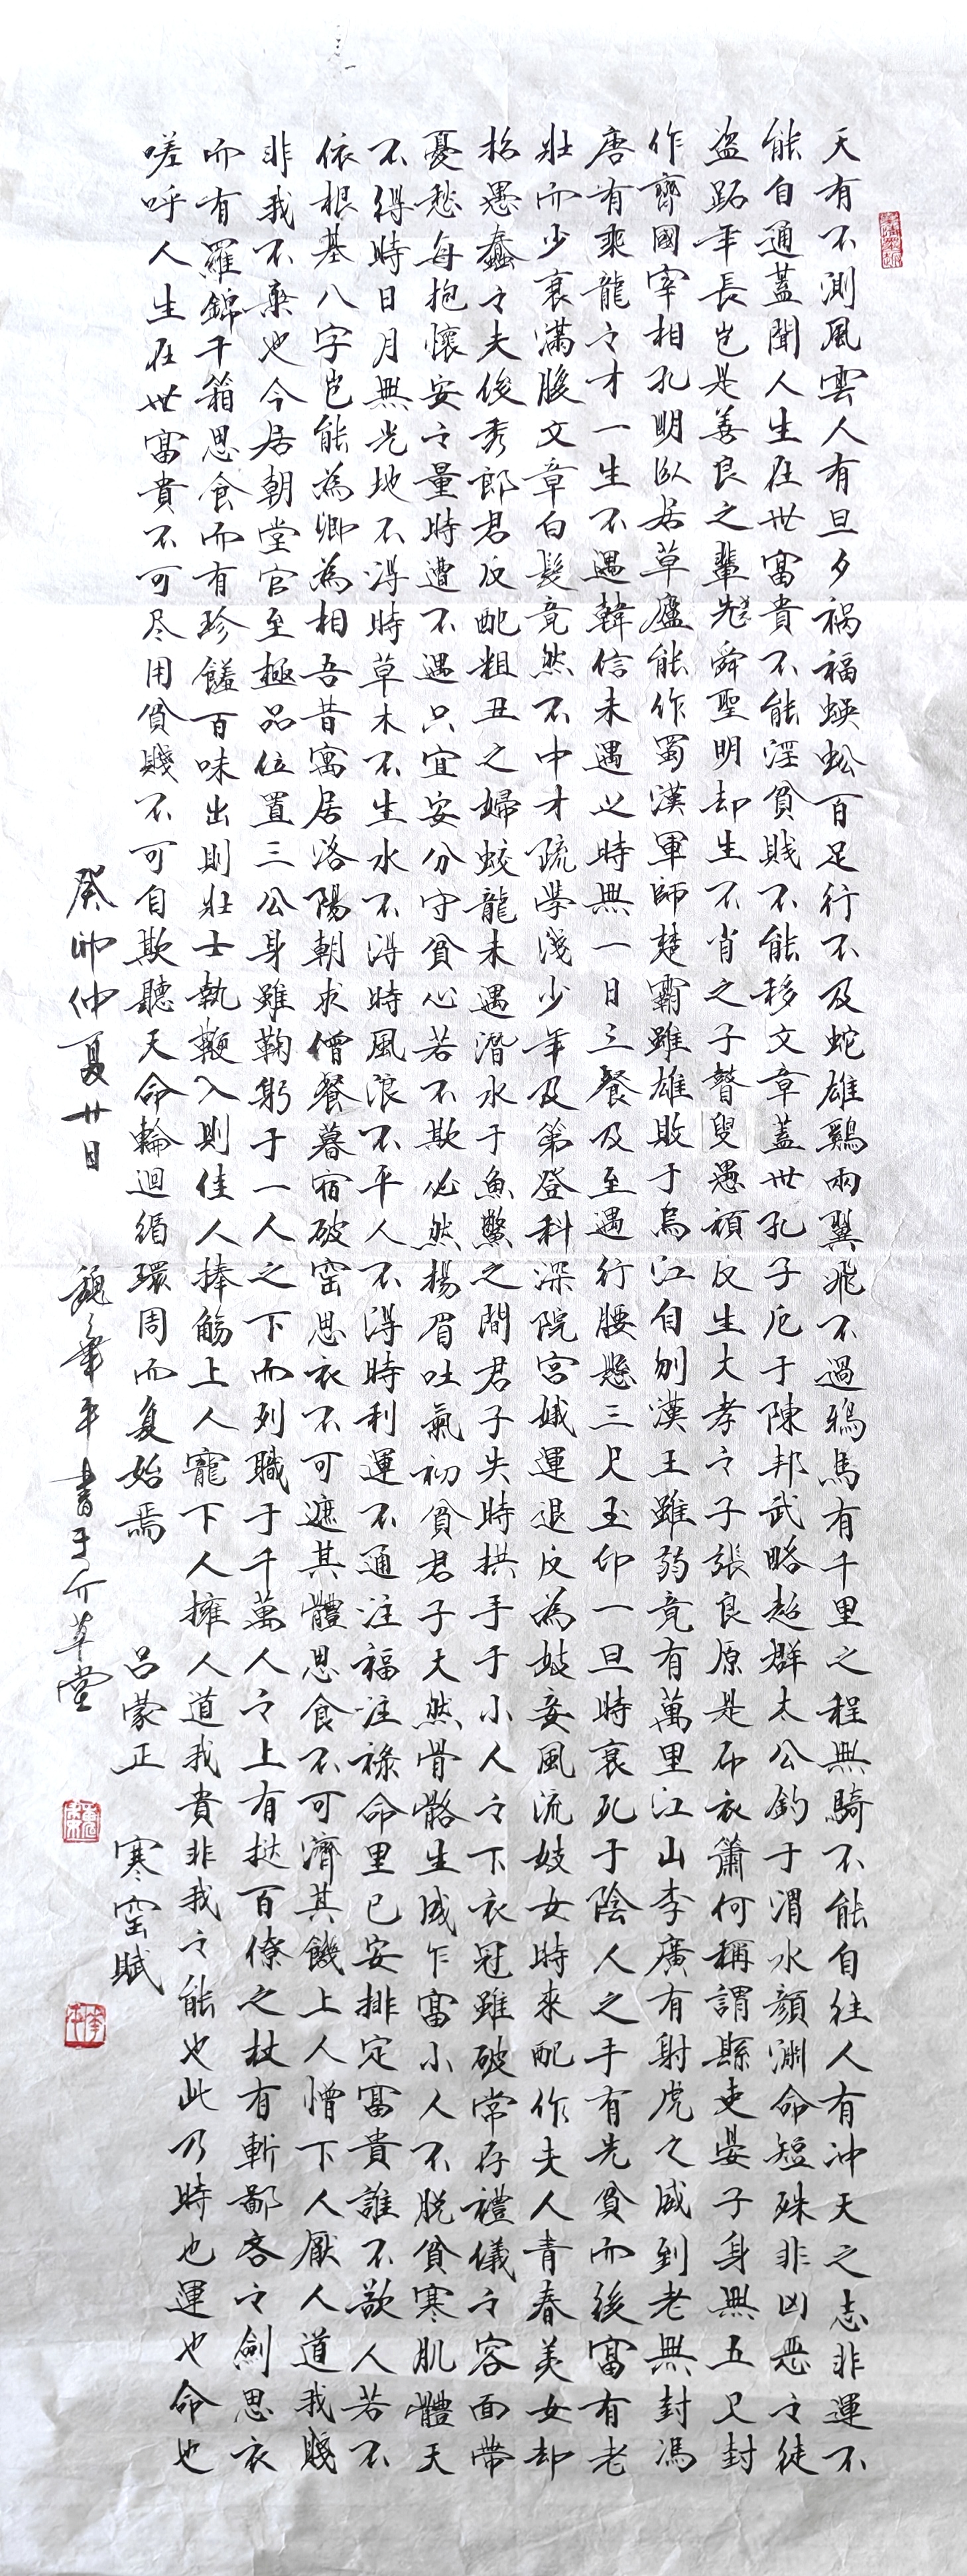 天有不測風雲人有旦夕禍福蜈蚣百足行不及蛇雄鷄兩翼飛不過鴉馬有千里之程無騎不能自往人有冲天之志非運不
能自通蓋聞人生在世富貴不能淫貧賎不能移文章蓋世孔子厄于陳邦武略超群太公釣于渭水顔渊命短殊非凶惡之徒
盗跖年長岂是善良之輩尭舜聖明却生不肖之子瞽叟愚頑反生大孝之子張良原是布衣蕭何稱謂縣吏晏子身無五尺封
作齊國宰相孔明臥居草廬能作蜀漢軍師楚霸雖雄敗于烏江自刎漢王雖弱竟有萬里江山李廣有射虎之威到老無封馮
唐有乘龍之才一生不遇韓信未遇之時無一日三餐及至遇行腰懸三尺玉印一旦時衰死于陰人之手有先貧而後富有老
壯而少衰滿腹文章白髮竟然不中才疏學淺少年及第登科深院宮娥運退反為妓妾風流妓女時來配作夫人青春美女却
招愚蠢之夫俊秀郎君反配粗丑之婦蛟龍未遇潛水于魚鱉之間君子失時拱手于小人之下衣冠雖破常存禮儀之容面帶
憂愁每抱懷安之量時遭不遇只宜安分守貧心若不欺必然揚眉吐氣初貧君子天然骨骼生成乍富小人不脱貧寒肌體天
不得時日月無光地不得時草木不生水不得時風浪不平人不得時利運不通注福注祿命里已安排定富貴誰不欲人若不
依根基八字岂能為卿為相吾昔寓居洛陽朝求僧餐暮宿破窑思衣不可遮其體思食不可濟其饑上人憎下人厭人道我賤
非我不棄也今居朝堂官至極品位置三公身雖鞠躬于一人之下而列職于千萬人之上有挞百僚之杖有斬鄙吝之劍思衣
而有羅錦千箱思食而有珍饈百味出則壯士執鞭入則佳人捧觴上人寵下人擁人道我貴非我之能也此乃時也運也命也
嗟呼人生在世富貴不可尽用貧賤不可自欺聽天命輪迴循環周而复始焉 吕蒙正 寒窑賦
癸卯仲夏廿日 魏華平書于介草堂